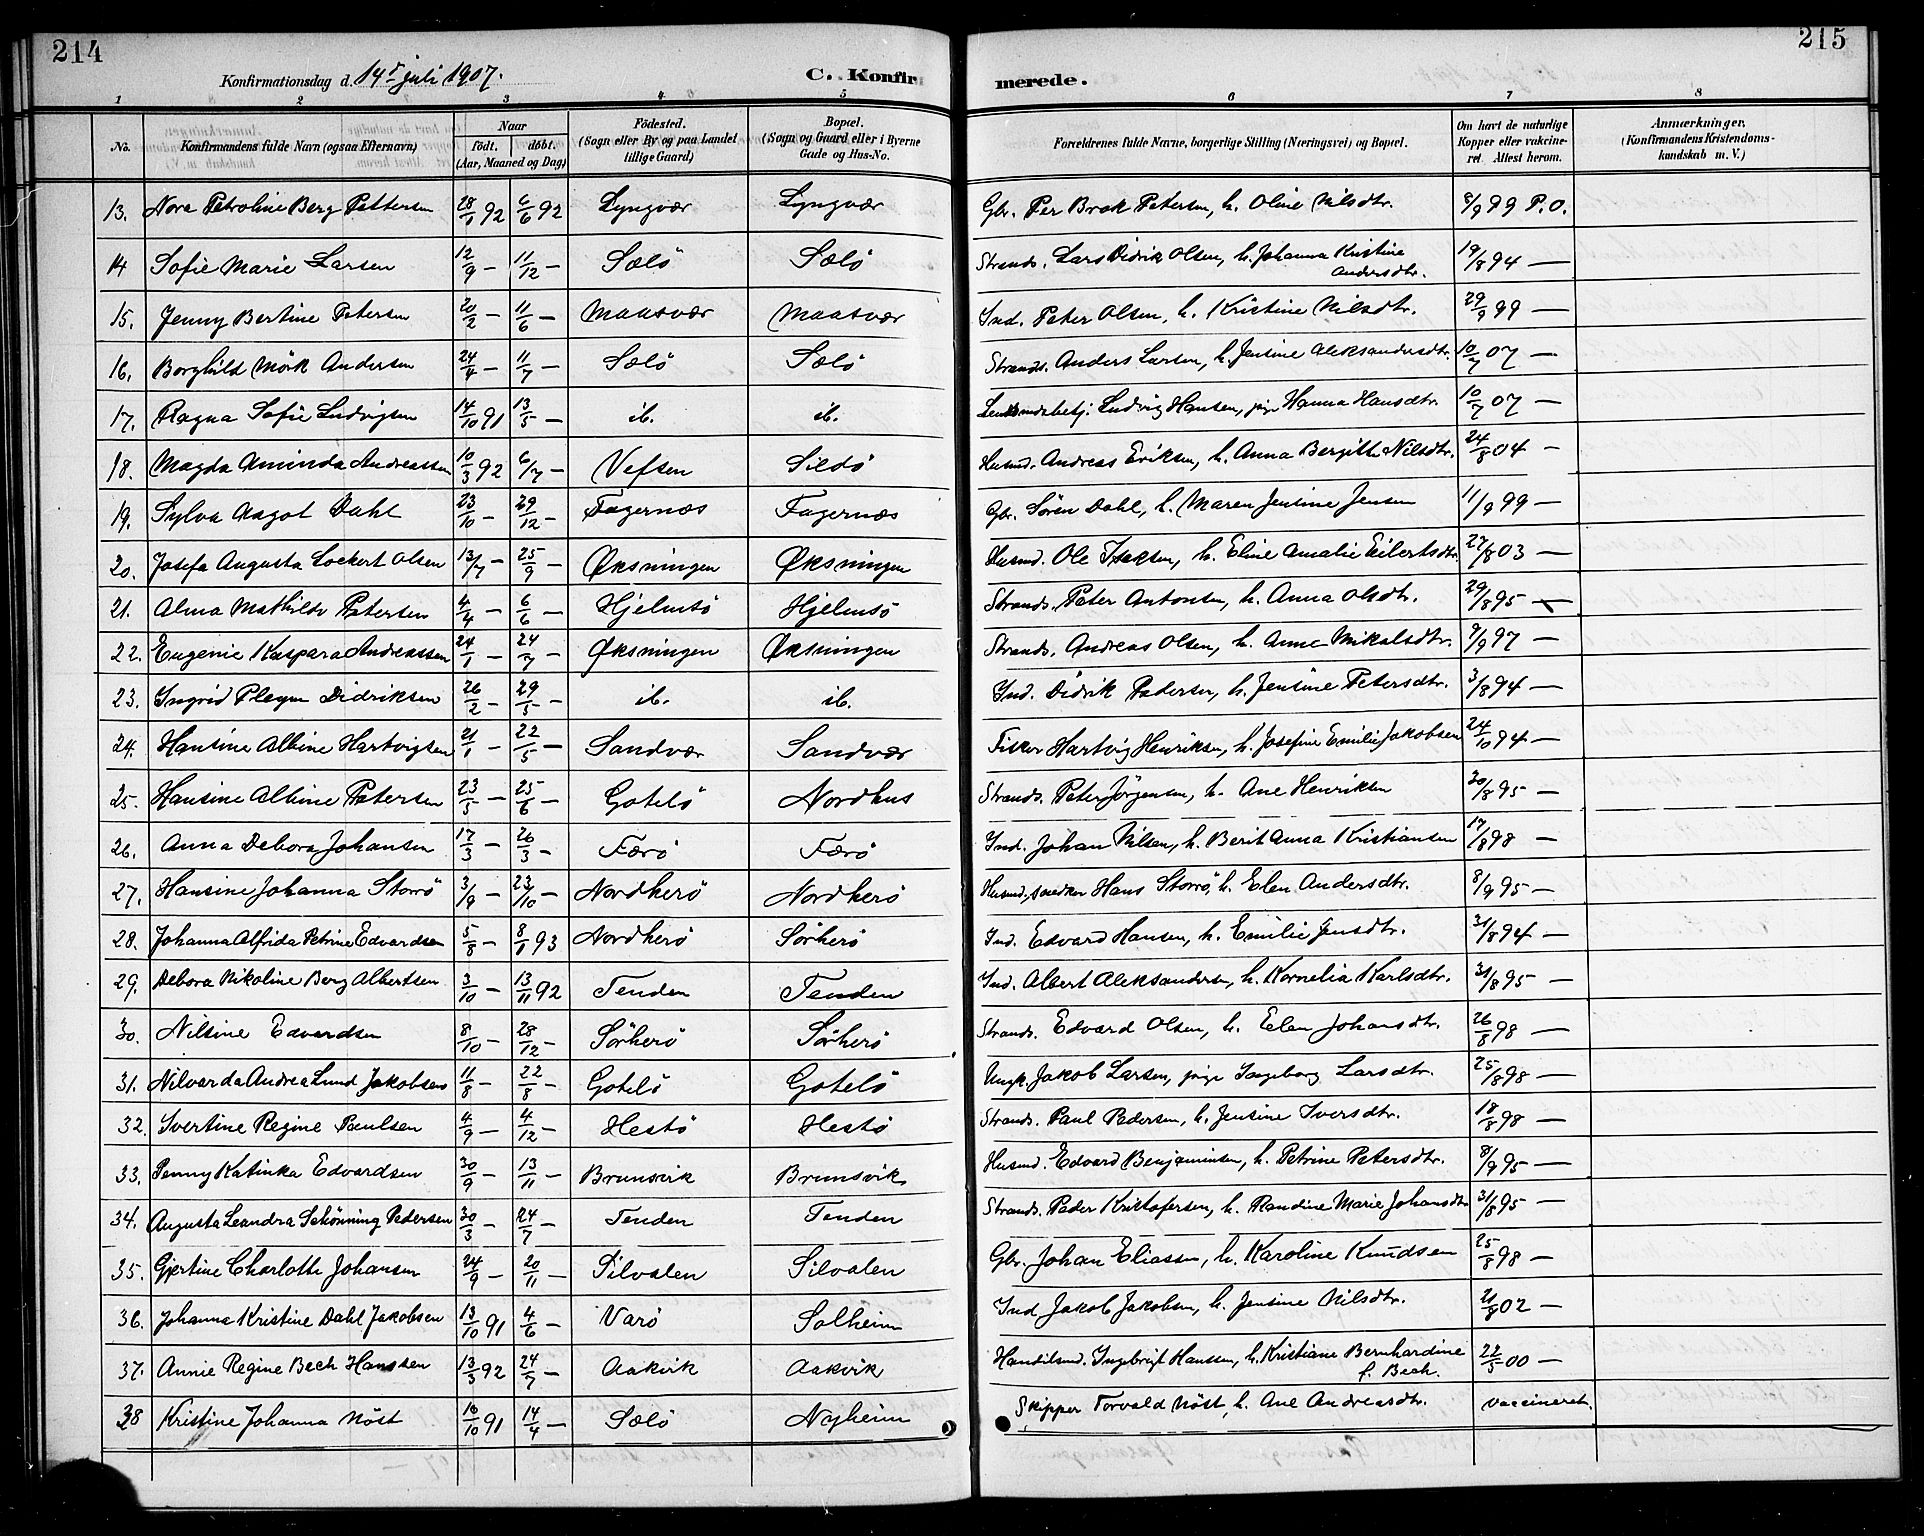 214
215
Konfirmationsdag d. 14de juli 1907.
C. Konfirmerede.
1 2 3 4 5 6 7 8
No. Konfirmandens fulde Navn (ogsaa Efternavn) Naar født. døbt. (Aar, Maaned og Dag) Födested. (Sogn eller By og paa Landet tillige Gaard) Bopæl. (Sogn og Gaard eller i Byerne Gade og Hus-No. Forældrenes fulde Navne, borgerlige Stilling (Næringsvei) og Bopæl. Om havt de naturlige Kopper eller vakcineret. Attest herom. Anmærkninger, (Konfirmandens Kristendomskundskab m. V.)
13. Nora Petroline Berg Pettersen 28/1 92 6/6 92 Lyngvær Lyngvær Gbr. Per Brok Petersen, h. Oline Nilsdtr. 8/9 99 P.O.
14 Sofie Marie Larsen 12/9 — 11/12 — Sælö Sælö Strands. Lars Didrik Olsen, h. Johanna Kristine Andersdtr. 19/8 94 —
15. Jenny Bertine Petersen 20/2 — 11/6 — Maasvær Maasvær Ind. Peter Olsen, h. Kristine Nilsdtr. 29/9 99 —
16. Borghild Mörk Andersen 24/4 — 11/7 — Sælö Sælö Strands. Anders Larsen, h. Jensine Aleksandersdtr. 10/7 07 —
17. Ragna Sofie Ludvigsen 14/10 91 13/5 — ib. ib. Ludvig Hansen, pige Hanna Hansdtr. 10/7 07 —
18. Magda Aminda Andreassen 10/3 92 6/7 — Vefsen Sildö Husmd. Andreas Eriksen, h. Anna Bergitte Nilsdtr. 24/8 04 —
19. Sylva Aagot Dahl 23/10 — 29/12 — Fagernæs Fagernæs Gbr. Sören Dahl, h. Maren Jensine Jensen 11/9 99 —
20. Josefa Augusta Lockert Olsen 13/7 — 25/9 — Øksningen Øksningen Husmd. Ole Isaksen, h. Eline Amalie Eilertsdtr. 27/8 03 —
21. Alma Mathilde Petersen 4/4 — 6/6 — Hjelmsö Hjelmsö Strands. Peter Antonsen, h. Anna Olsdtr. 29/8 95 —
22. Eugenie Kaspara Andreassen 24/1 — 24/7 — Øksningen Øksningen Strands. Andreas Olsen, h. Anne Mikalsdtr. 9/9 97 —
23. Ingrid Pleym Didriksen 26/2 — 29/5 — ib. ib. Ind. Didrik Pedersen, h. Jensine Petersdtr. 3/8 94 —
24. Hansine Albine Hartvigsen 21/1 — 22/5 — Sandvær Sandvær Fisker Hartvig Henriksen, h. Josefine Emilie Jakobsen 24/10 94 —
25. Hansine Albine Petersen 23/5 — 25/6 — Gotelö Nordhus Strands. Peter Jörgensen, h. Ane Henriksen 30/8 95 —
26. Anna Debora Johansen 17/3 — 26/3 — Færö Færö Ind. Johan Nilsen, h. Berit Anna Kristiansen 17/8 98 —
27. Hansine Johanna Storrö 3/9 — 23/10 — Nordherö Nordherö Husmd. snedker Hans Storrö, h. Elen Andersdtr. 8/9 95 —
28. Johanna Alfrida Petrine Edvardsen 5/8 — 8/1 93 Nordherö Sörherö Ind. Edvard Hansen, h. Emilie Jensdtr. 31/8 94 —
29. Debora Nikoline Berg Albertsen 3/10 — 13/11 92 Tenden Tenden Ind. Albert Aleksandersen, h. Kornelia Karlsdtr. 31/8 95 —
30. Nilsine Edvardsen 8/10 — 28/12 — Sörherö Sörherö Strands. Edvard Olsen, h. Elen Johansdtr. 26/8 98 —
31. Nilvarda Andrea Lund Jakobsen 11/8 — 22/8 — Gotelö Gotelö Ungk. Jakob Larsen, pige Ingeborg Larsdtr. 25/8 98 —
32. Ivertine Regine Paulsen 4/9 — 4/12 — Hestö Hestö Strands. Paul Pedersen, h. Jensine Iversdtr. 18/8 98 —
33. Penny Katinka Edvardsen 30/9 — 13/11 — Brunsvik Brunsvik Husmd. Edvard Benjaminsen, h. Petrine Petersdtr. 8/9 95 —
34. Augusta Leandra Schönning Pedersen 30/3 — 24/7 — Tenden Tenden Strands. Peder Kristofersen, h. Randine Marie Johansdtr 31/8 95 —
35. Gjertine Charlotte Johansen 24/9 — 20/11 — Silvalen Silvalen Gbr. Johan Eliassen, h. Karoline Knudsen 25/8 98 —
36. Johanna Kristine Dahl Jakobsen 13/10 91 4/6 — Varö Solheim Ind Jakob Jakobsen, h. Jensine Nilsdtr. 21/8 02 —
37. Annie Regine Bech Hanssen 13/3 92 24/7 — Aakvik Aakvik Handelsmd. Ingbrigt Hanssen, h. Kristiane Bernhardine f. Bech. 22/5 00 —
38 Kristine Johanna Nöst 10/10 91 14/4 — Sælö Nyheim Skipper Torvald Nöst, h. Ane Andreasdtr. vaccineret.